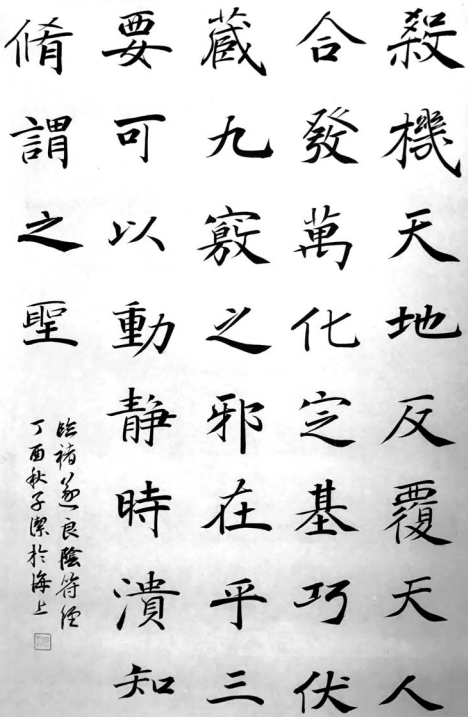 殺機天地反覆天人
合發萬化定基巧伏
藏九竅之邪在乎三
要可以動静時潰知
脩謂之聖
臨褚遂良陰符經
丁酉秋子潔於海上